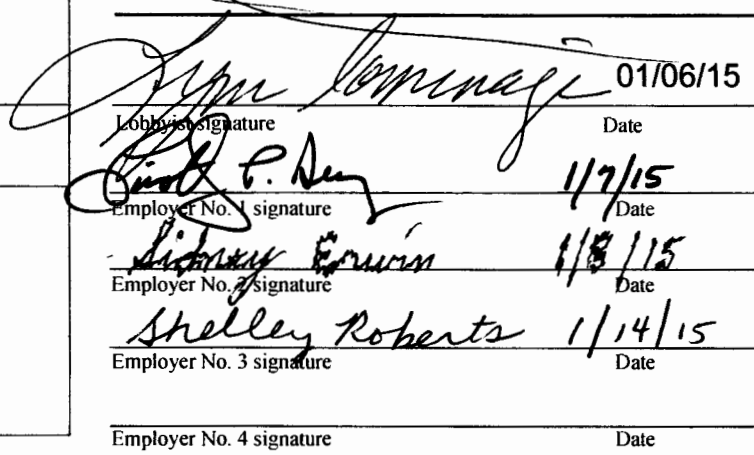 01/06/15
Lobbyist signature Date
P. 1/7/15
Employer No. 1 signature Date
Sidney Erwin 1/8/15
Employer No. 2 signature Date
Shelley Roberts 1/14/15
Employer No. 3 signature Date
Employer No. 4 signature Date